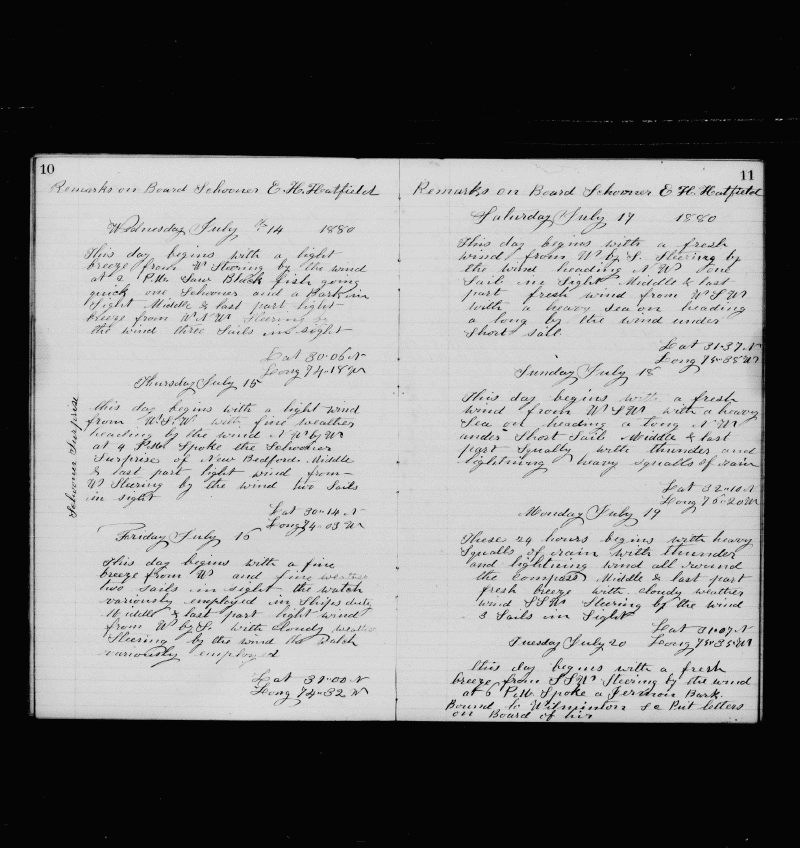 10
Remarks on Board Schooner E. H. Hatfield
Wednesday July 14 1880
This day begins with a light
breeze from W Steering by the wind
at 2 P.M. Saw Black fish going
quick one Schooner and a Bark in
Sight Middle & last part light
breeze from W.N.W. Steering
the wind three Sails in sight
Lat 30-06 N
Long 74-18 W
Thursday July 15
Schooner Surprise
this day begins with a light wind
from W.S.W. with fine weather
heading by the wind N W by W
at 4 P.M. Spoke the Schooner
Surprise of New Bedford. Middle
& last part light wind from
W Steering by the wind two Sails
in sight
Lat 30-14 N
Long 74-03 W
Friday July 16
This day begins with a fine
breeze from W and fine weather
two sails in sight the watch
variously employed in Ships duty
Middle & last part light wind
from W by S. with cloudy weather
Steering by the wind the Watch
variously employed
Lat 31-00 N
Long 74-32 W
11
Remarks on Board Schooner E H. Hatfield
Saturday July 17 1880
This day begins with a fresh
wind from W by S. Steering by
the wind heading N W one
Sail in Sight Middle & last
part fresh wind from W S W
with a heavy sea on heading
a long by the wind under
Short sail
Lat 31-37 N
Long 75-35 W
Sunday July 18
This day begins with a fresh
wind from W S W with a heavy
Sea on heading a long N W
under Short Sail Middle & last
part Squally with thunder and
lightning heavy squalls of rain
Lat 32-10 N
Long 76-20 W
Monday July 19
These 24 hours begins with heavy
Squalls of rain with thunder
and lightning wind all around
the compass Middle & last part
fresh breeze with cloudy weather
wind S S W Steering by the wind
3 Sails in Sight
Lat 31-07 N
Long 75-35 W
Tuesday July 20
this day begins with a fresh
breeze from S S W Steering by the wind
at 6 P.M. Spoke a German Bark.
Bound to Wilminton Put letters
on Board of hir